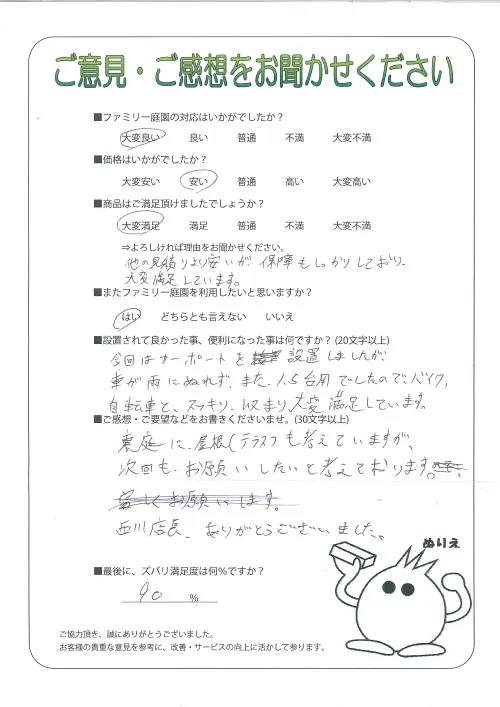 ご意見・ご感想をお聞かせください
■ファミリー庭園の対応はいかがでしたか？
大変良い 良い 普通 不満 大変不満
■価格はいかがでしたか？
大変安い 安い 普通 高い 大変高い
■商品はご満足頂けましたでしょうか？
大変満足 満足 普通 不満 大変不満
⇒よろしければ理由をお聞かせください。
他の見積りより安いが、保障もしっかりしており、
大変満足しています。
■またファミリー庭園を利用したいと思いますか？
はい どちらとも言えない いいえ
■設置されて良かった事、便利になった事は何ですか？(20文字以上)
今回はカーポートを設置しましたが、
車が雨にぬれず、また、1.5台用でしたので、バイク、
自転車と、スッキリ、収まり、大変満足しています。
■ご感想・ご要望などをお書きくださいませ。(30文字以上)
裏庭に、屋根(テラス)も考えていますが、
次回も、お願いしたいと考えております。
西川店長、ありがとうございました。
ぬりえ
■最後に、ズバリ満足度は何％ですか？
90 ％
ご協力頂き、誠にありがとうございました。
お客様の貴重な意見を参考に、改善・サービスの向上に活かして参ります。